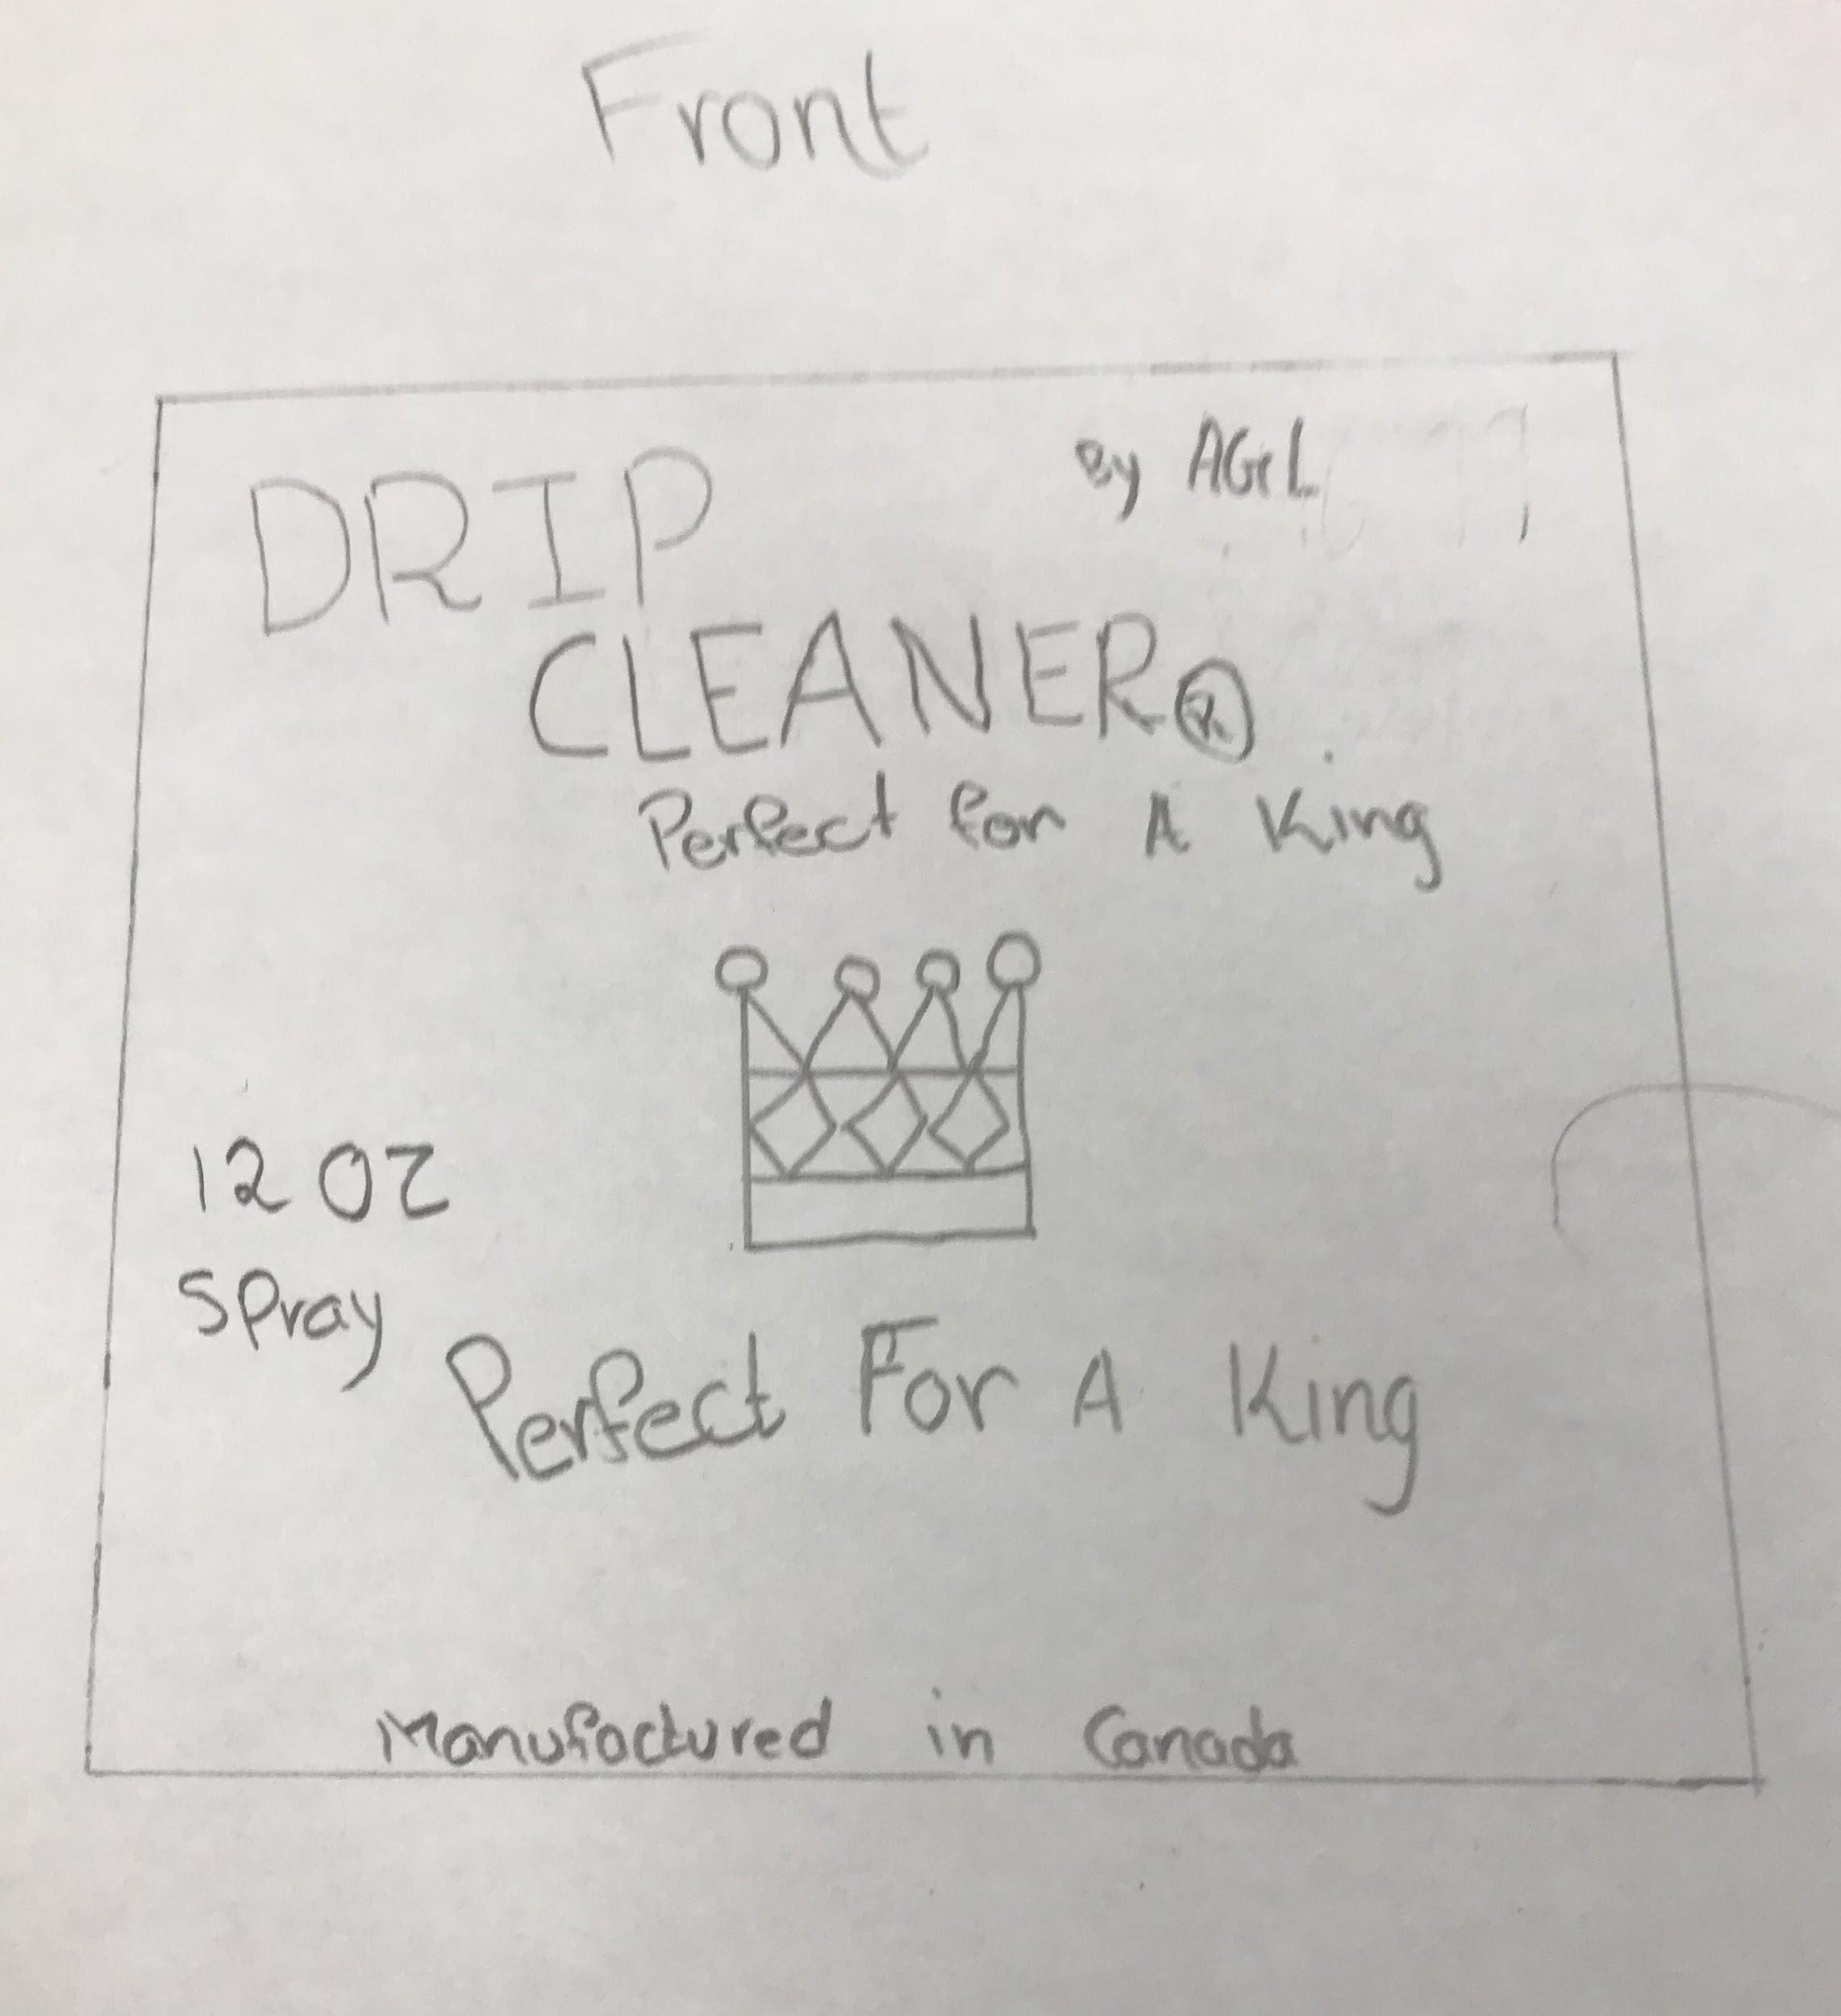 Front
By AG&L
DRIP
CLEANER®
Perfect for A King
12 OZ
Spray
Perfect For A King
Manufactured in Canada